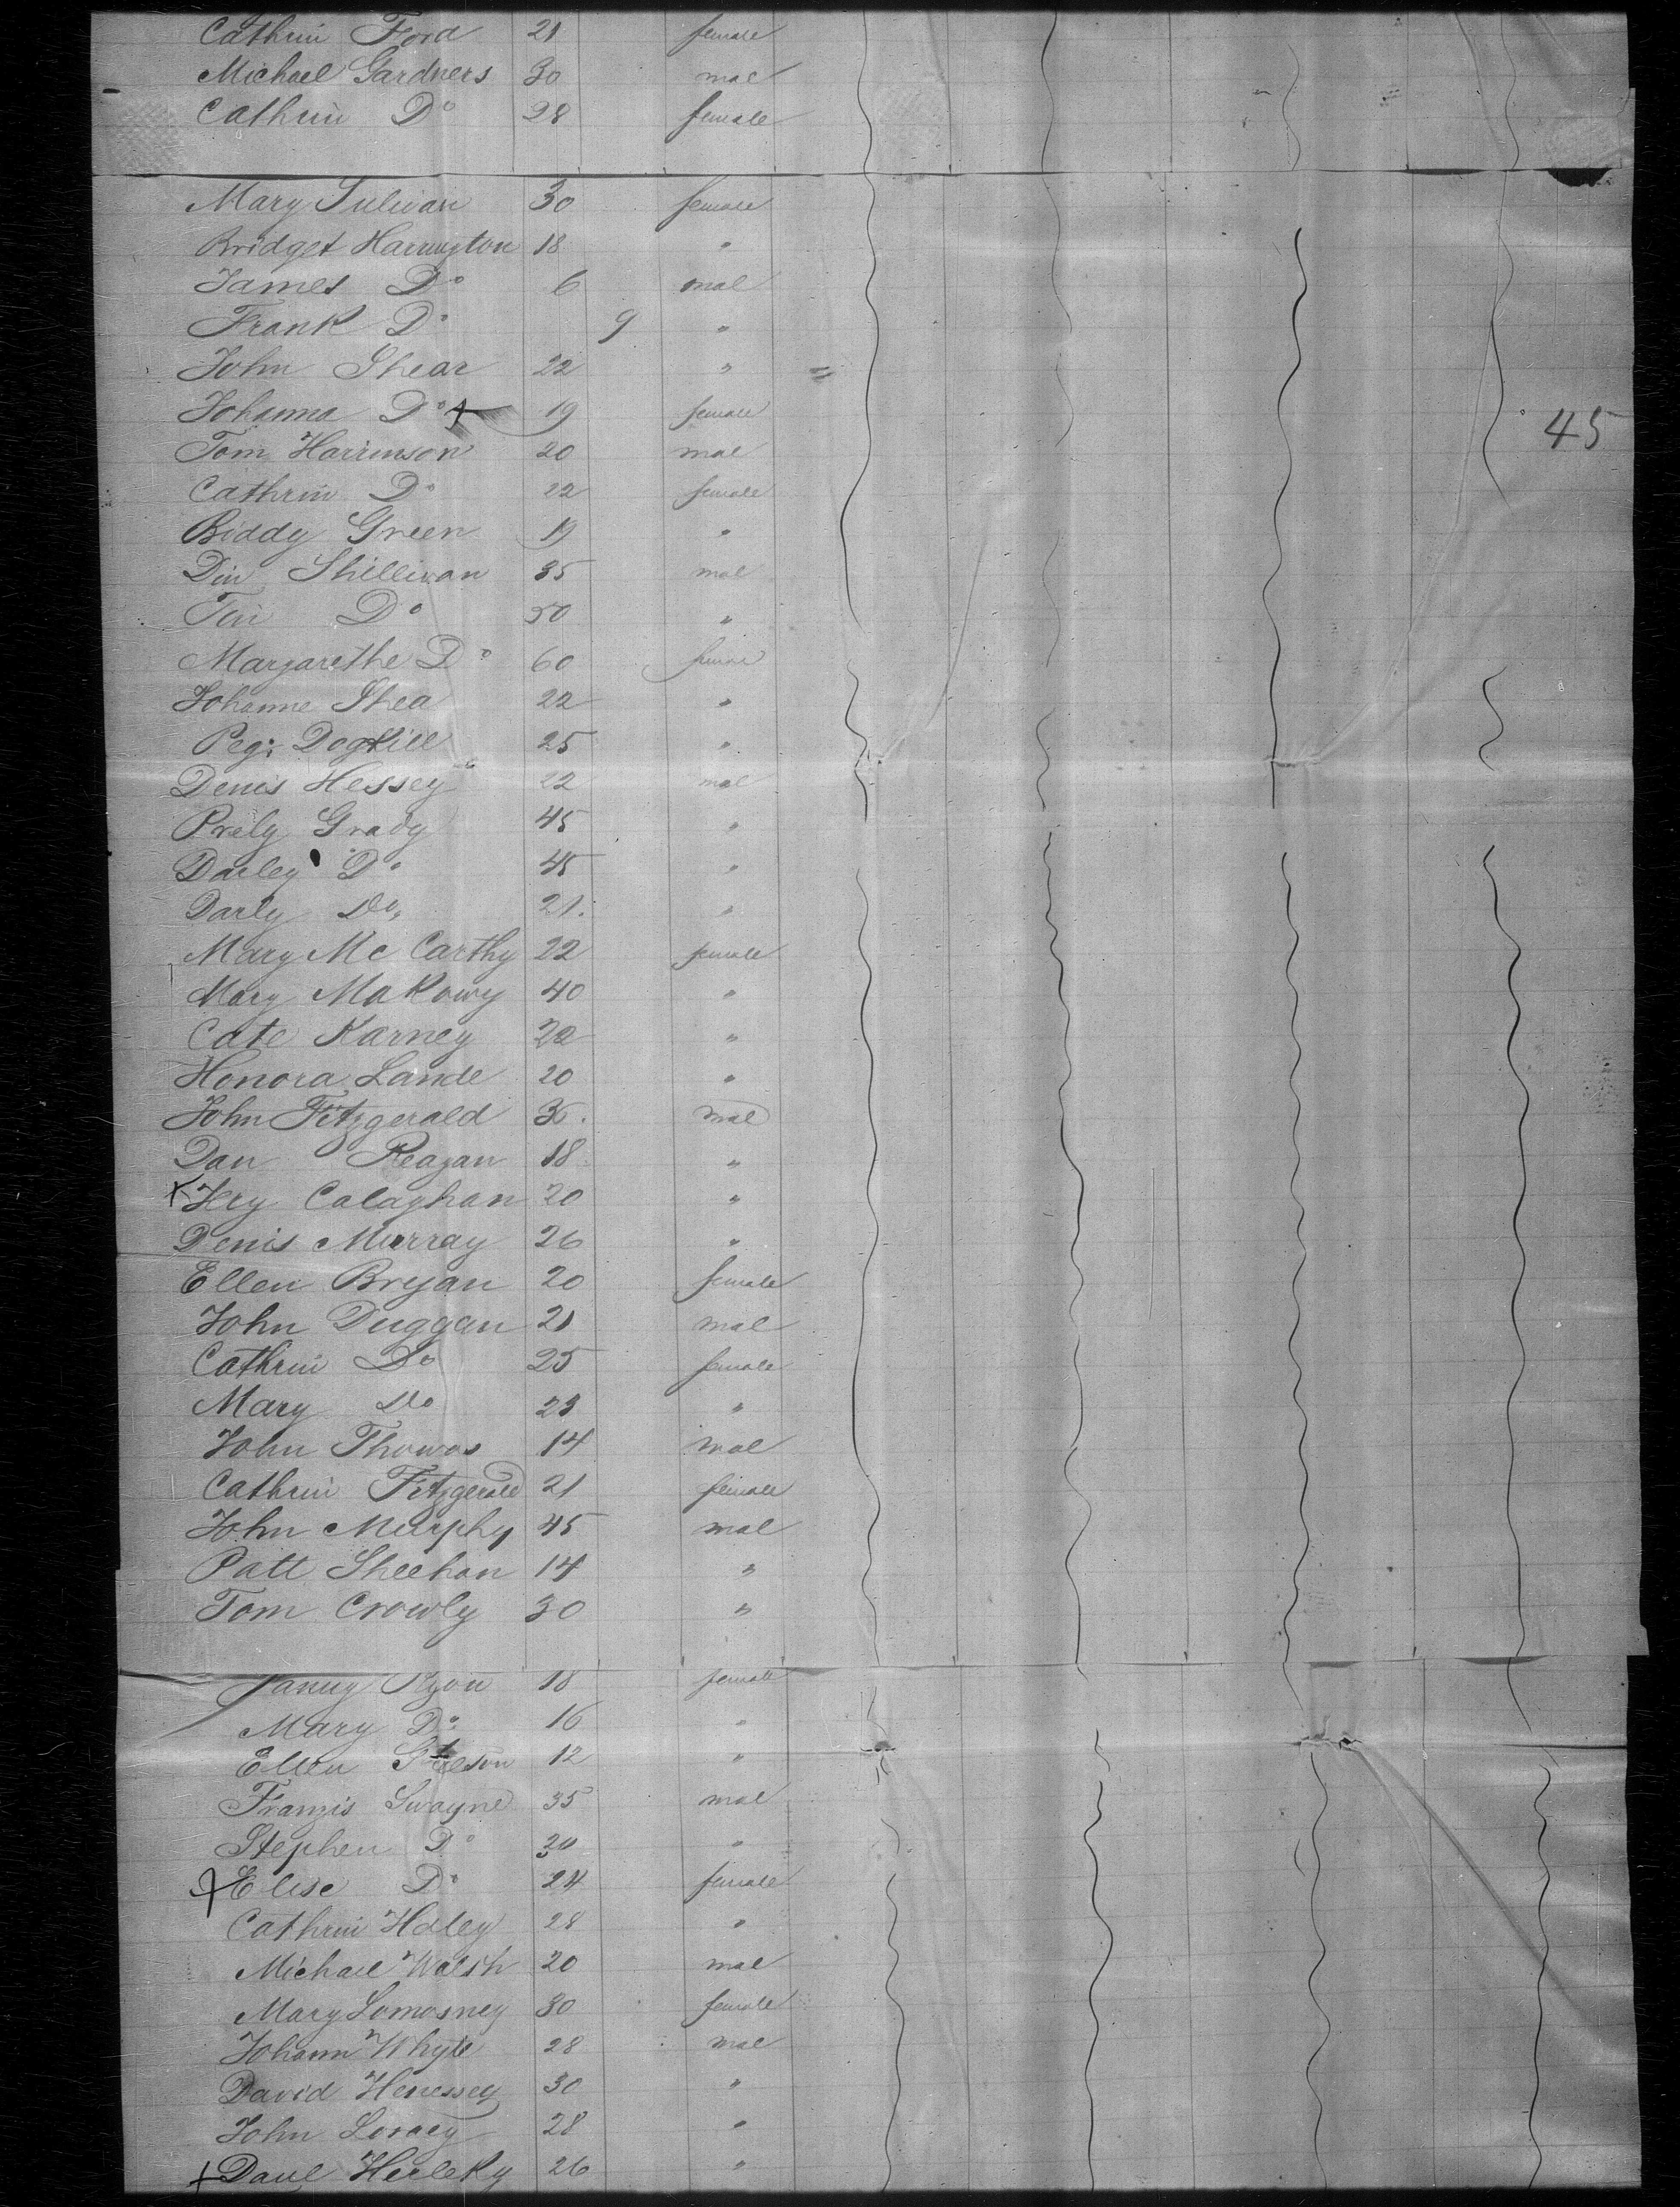 Cathrin Ford 21 female
Michael Gardners 30 mal
Cathrin Do 28 female
Mary Sulivan 30 female
Bridget Harrington 18 "
James Do 6 mal
Frank Do 9 "
John Shear 22 "
Johanna Do 19 female
45
Tom Harrinson 20 mal
Cathrin Do 22 female
Biddy Green 19 "
Din Shillivan 35 mal
Do 50 "
Margarethe Do 60 female
Johanne Shea 22 "
Peg: Dogkill 25 "
Denis Hessey 22 mal
Grady 45 "
Darley Do 45 "
Darly Do, 21. "
Mary Mc Carthy 22 female
Mary Makowy 40 "
Cate Karney "
Honora Lande 20 "
John Fitzgerald mal
Dan Reagan 18 "
Jery Calaghan 20 "
Denis Murray 26 "
Ellen Bryan 20 female
John Duggan 21 mal
Cathrin Do 25 female
Mary Do "
John Thomas 14 mal
Cathrin Fitzgerald 21 female
John Murphy 45 mal
Patt Sheehan 14 "
Tom Crowly 30 "
Ryon 18 female
Mary Do 16 "
Ellen 12 "
Franzis Swayne 35 mal
Stephen Do "
Elise Do 24 female
Cathrin Haley 28 "
Michael Walsh 20 mal
Mary Lomosney 30 female
Johann Whyte 28 mal
David Henessey 30 "
John 28 "
Herleky 26 "